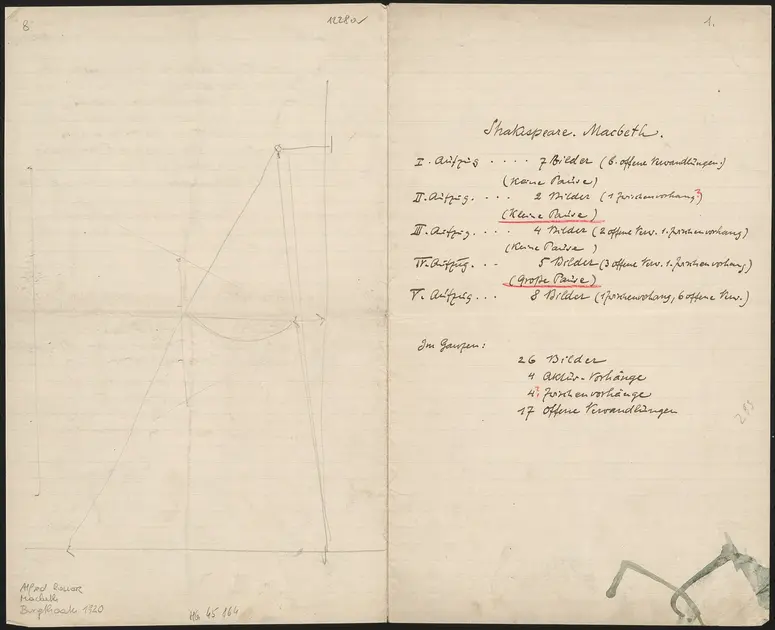 8
1228a
Alfred Roller
Macbeth
Burgtheater 1920
HÜ 45 864
1.
Shakspeare. Macbeth.
I. Aufzug . . . . 7 Bilder (6. offene Verwandlungen.)
(Keine Pause)
II. Aufzug. . . . 2 Bilder (1 Zwischenvorhang?)
(Kleine Pause)
III. Aufzug. . . . 4 Bilder (2 offene Verw. 1. Zwischenvorhang)
(Keine Pause)
IV. Aufzug. . . . 5 Bilder (3 offene Verw. 1. Zwischenvorhang)
(Große Pause)
V. Aufzug . . . 8 Bilder (1 Zwischenvorhang, 6 offene Verw.)
Im Ganzen:
26 Bilder
4 Aktür-Vorhänge
4? Zwischenvorhänge
17 offene Verwandlungen